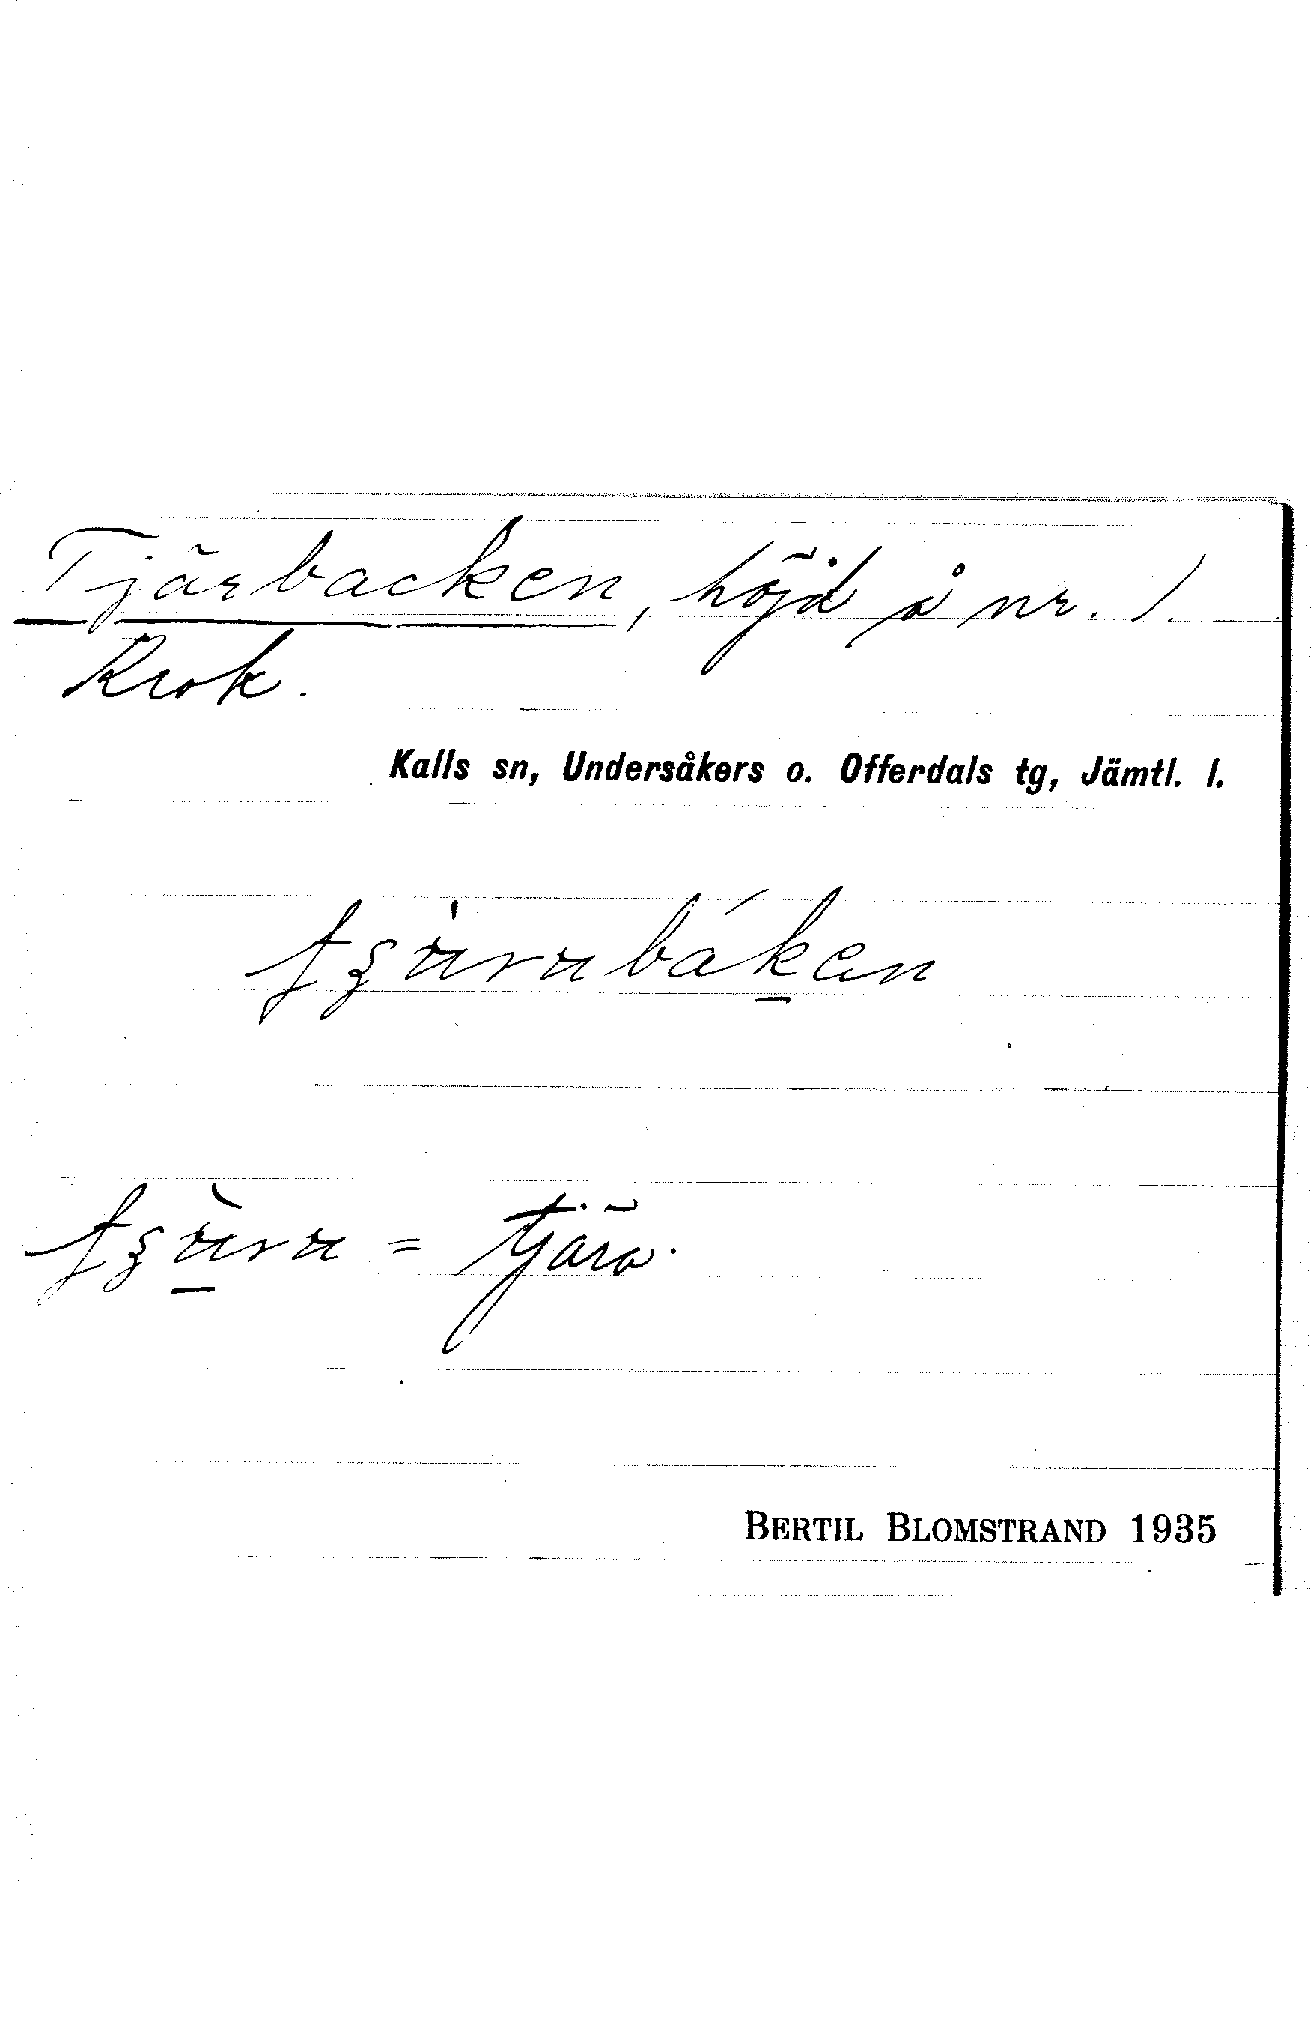 Tjärbacken, höjd å nr. 1
Krok.
Kalls sn, Undersåkers o. Offerdals tg, Jämtl. l.
= tjära.
BERTIL BLOMSTRAND 1935